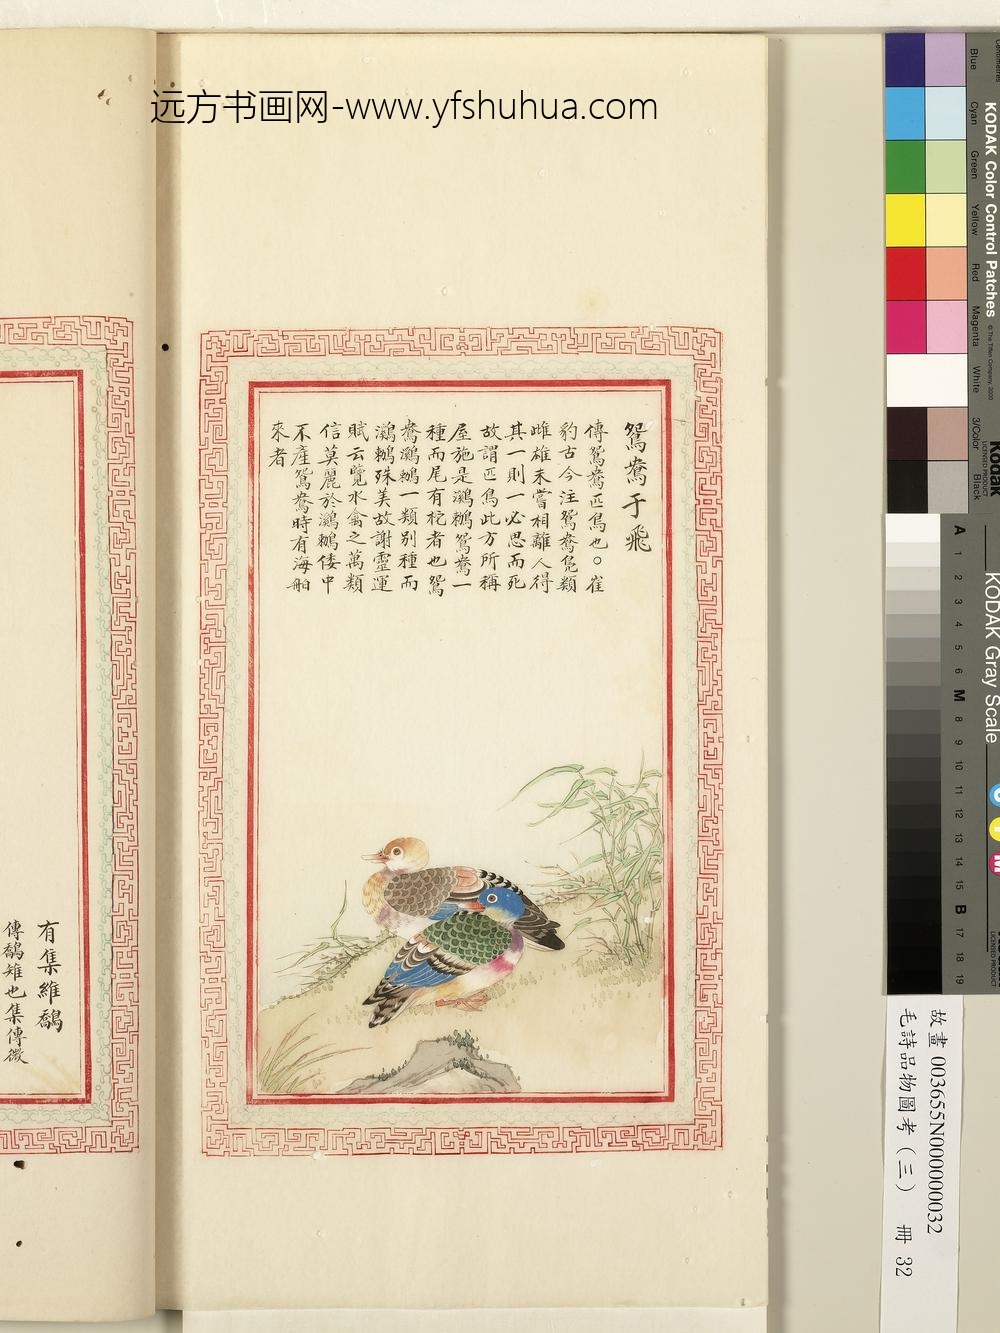 远方书画网-www.yfshuhua.com
鴛鴦于飛
傳鴛鴦匹鳥也○崔
豹古今注鴛鴦鳧類
雌雄未嘗相離人得
其一則一必思而死
故謂匹鳥此方所稱
屋施是鸂鶒鴛鴦一
種而尾有柁者也鴛
鴦鸂鶒一類别種而
鸂鶒殊美故謝靈運
賦云覽水禽之萬類
信莫麗於鸂鶒倭中
不產鴛鴦時有海舶
來者
有集維鷮
傳鷮雉也集傳微
KODAK Color Control Patches
© The Tiffen Company, 2000
Centimetres
Blue
Cyan
Green
Yellow
Red
Magenta
White
3/Color
Black
Kodak
LICENSED PRODUCT
KODAK Gray Scale
A 1 2 3 4 5 6 M 8 9 10 11 12 13 14 15 B 17 18 19
C
Y
M
Kodak
LICENSED PRODUCT
故畫 003655N00000032
毛詩品物圖考（三） 冊 32